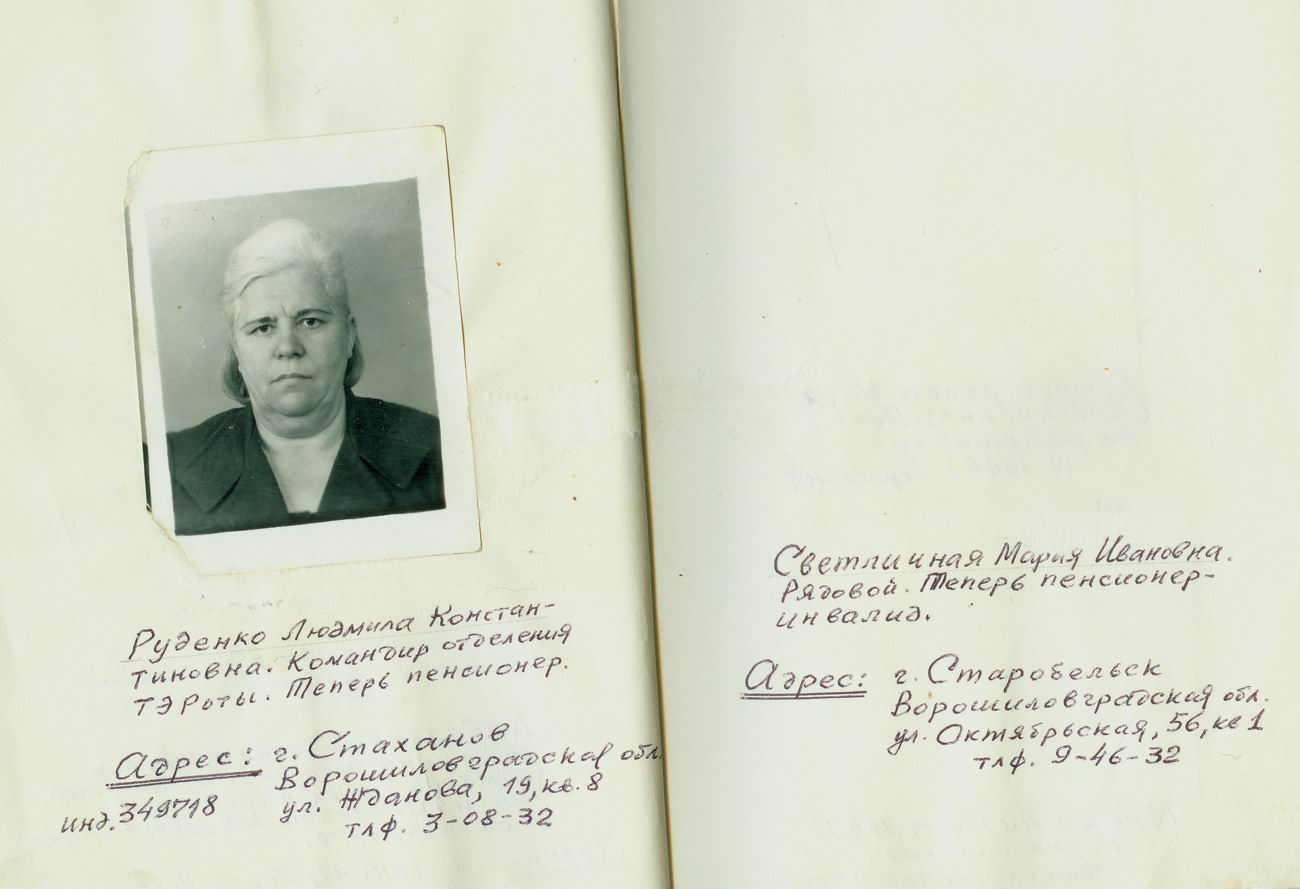 Руденко Людмила Констан-
тиновна. Командир отделения
ТЭРоты. Теперь пенсионер.
Адрес: г. Стаханов
Ворошиловградской обл.
инд. 349718 ул. Жданова, 19, кв. 8
тлф. 3-08-32
Светличная Мария Ивановна.
Рядовой. Теперь пенсионер-
инвалид.
Адрес: г. Старобельск
Ворошиловградская обл.
ул. Октябрьская, 56, кв 1
тлф. 9-46-32